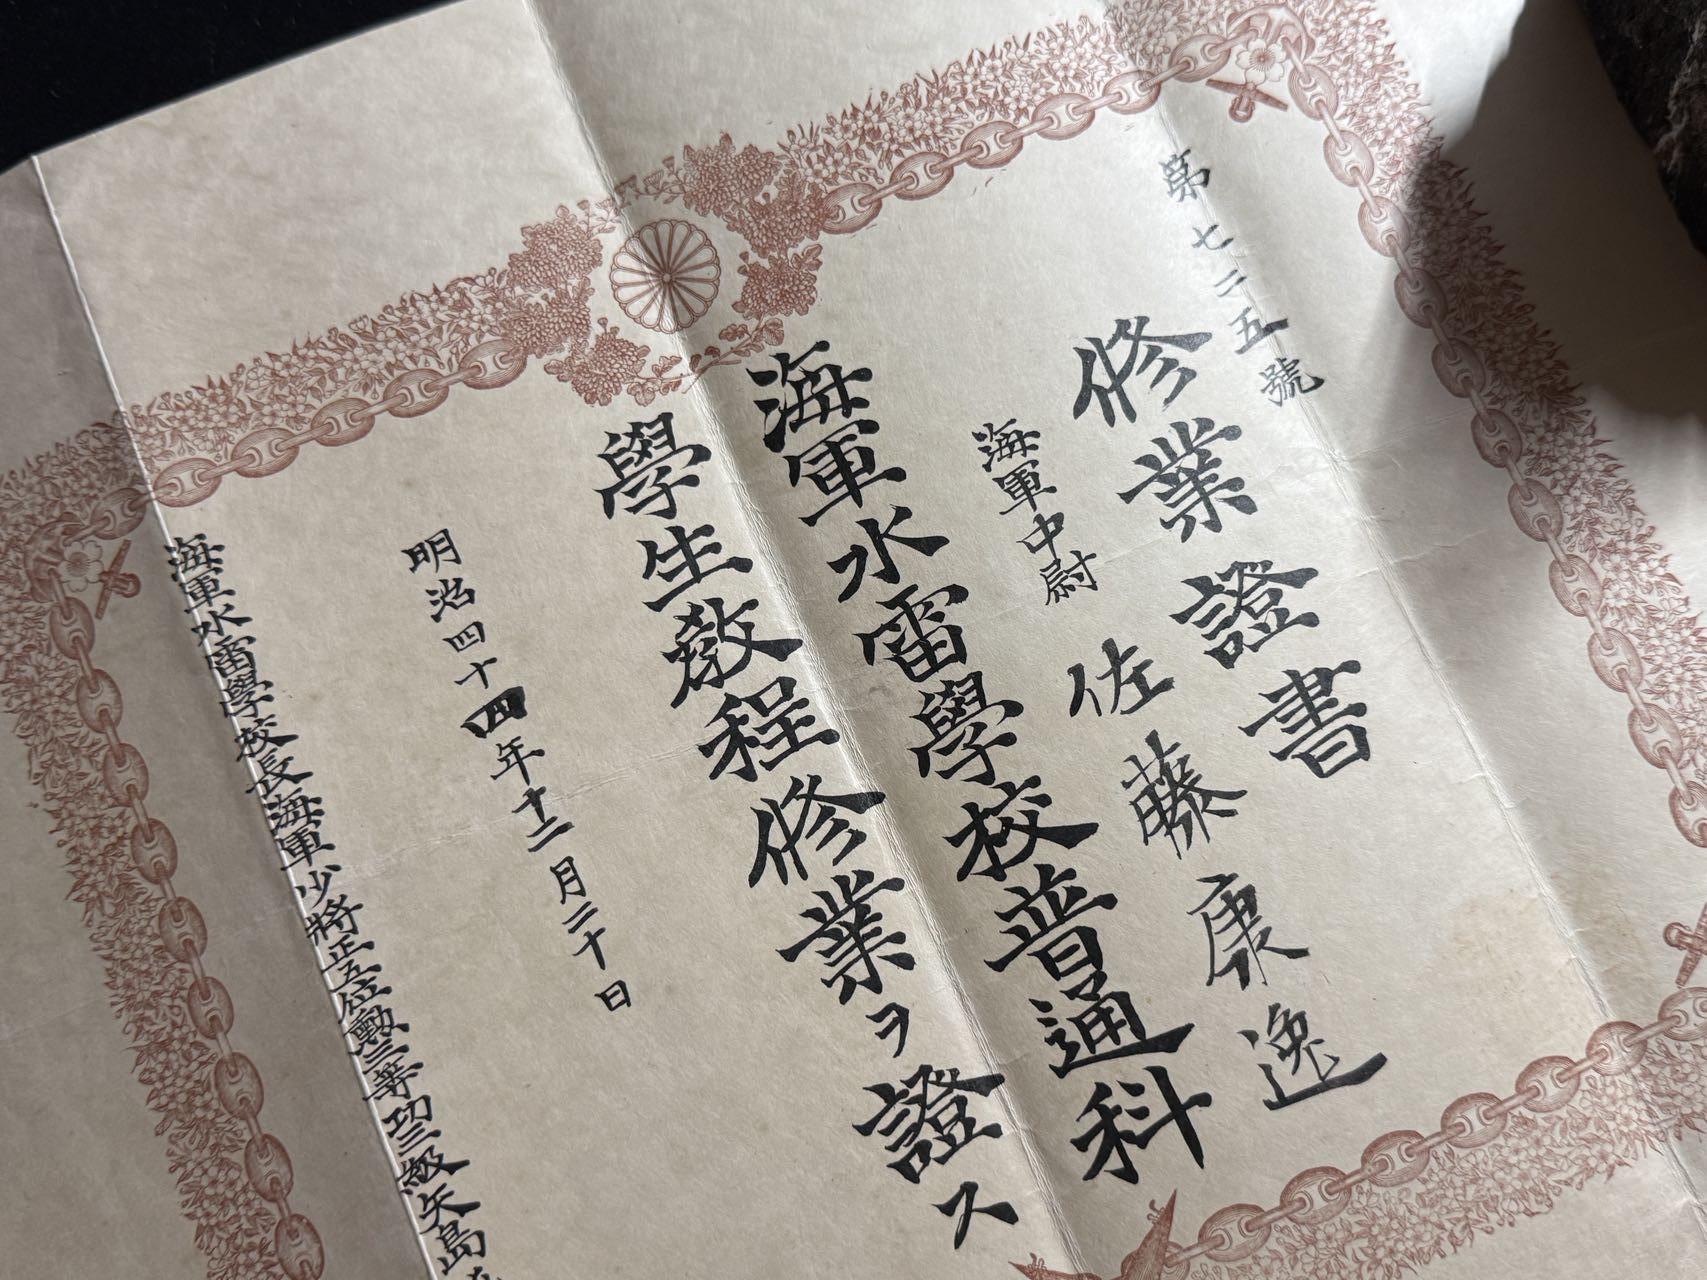 第七二五號
修業證書
海軍中尉 佐藤康逸
海軍水雷學校普通科
學生教程修業ヲ證ス
明治四十四年十二月二十日
海軍水雷學校長海軍少將正五位勳三等功三級矢島